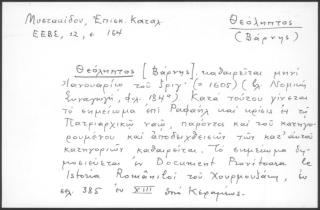 Μυστακίδου, Ἐπισκ. Κατάλ.
ΕΕΒΣ, 12, σ 164
Θεόληπτος
(Βάρνης)
Θεόληπτος [Βάρνης], καθαιρεῖται μηνὶ
Ἰανουαρίῳ τοῦ ͵αριγʹ (= 1605) (ἐν Νομικῇ
Συναγωγῇ, φλ. 184α) Κατὰ τούτου γίνεται
τὸ σημείωμα ἐπὶ Ραφαὴλ καὶ κρίσις ἐν τῷ
Πατριαρχικῷ ναῷ, παρόντος καὶ τοῦ κατηγο-
ρουμένου καὶ ἀποδειχθεισῶν τῶν κατ' αὐτοῦ
κατηγοριῶν καθαιρεῖται. Τὸ σημείωμα δη-
μοσιεύεται ἐν Document Privitoare le
Istoria Românilor τοῦ Χουρμουζάκη, ἐν
σελ. 385 ἐν XIII ὑπὸ Κεραμέως.